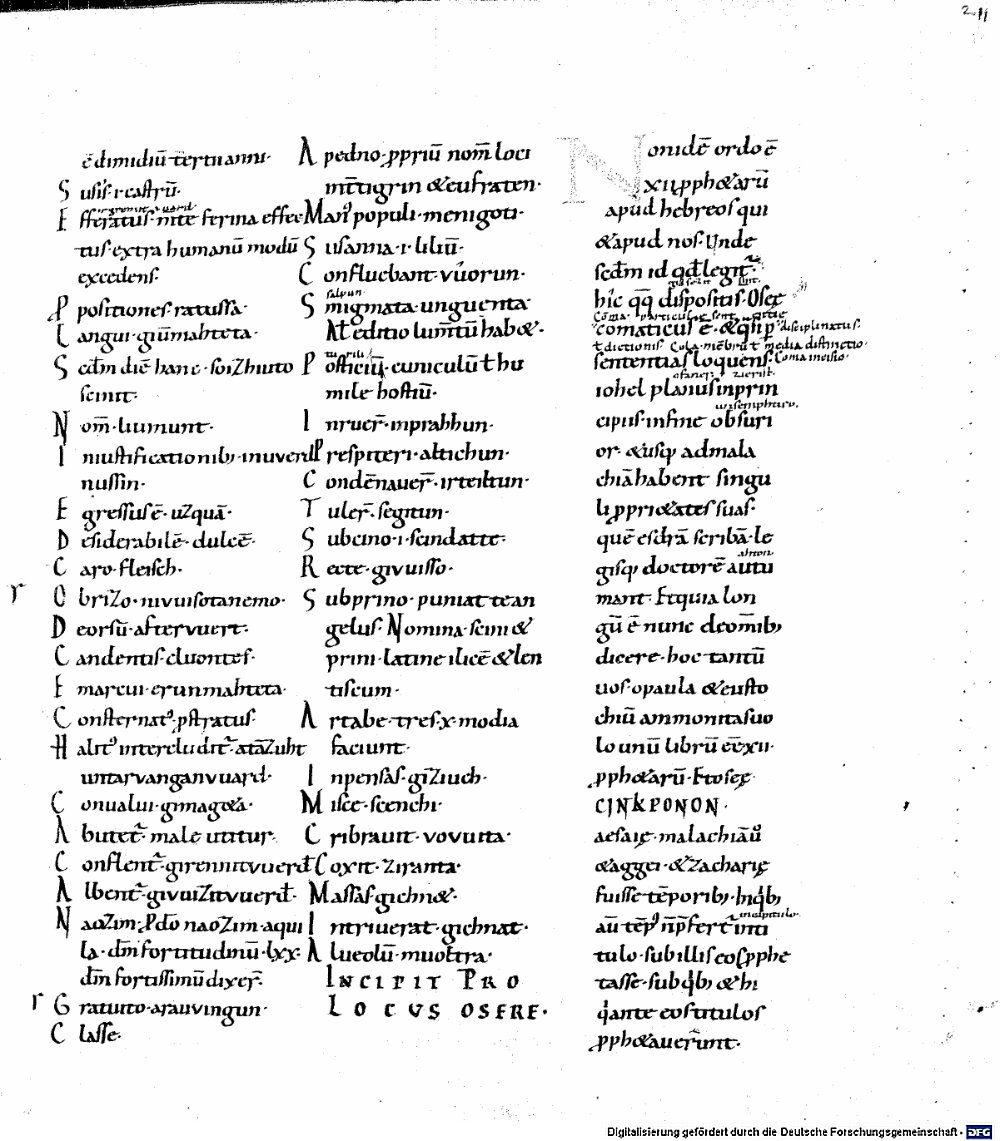 211
ē dimidiū tērtii anni·
Susis· i· castrū·
ferina
Efferatus· mite ferina effec
tus· extra humanū modū
excedens·
Ppositiones· ratussa·
Langui· giūmahteta·
Sedm̄ diē hanc· soiZhiuto
scinit·
Nom̄· liumunt·
Iniustificationib; inuverd
nussin·
Egressus ē· uZquā·
Desiderabilē· dulcē·
Caro· fleisch·
r
Obrizo· nivuisotanemo·
Deorsū· aftervuert·
Candentis· cluontes·
Emarcui· erunmahteta·
Consternat'· pstratus·
Halit' intercludit̄· ataZuht
untarvanganvuard·
Conualui· gimageta·
Abutet̄· male utitur·
Conflent̄· girennitvuerd
Albent̄· givuiZitvuerd·
NaoZim· p dō naoZim· aqui
la· dm̄ fortitudinū· lxx·
dm̄ fortissimū dixer̄·
r
Gratuito· arauvingun·
Classe·
Apedno· ppriū nom̄ loci
int̄ tigrin & eufraten·
Man' populi· menigoti·
Susanna· i· liliū·
Confluebant· vúorun·
salpun
Smigmata· unguenta
At editio lum̄tū hab&·
Posticiū· cuniculū t hu
mile hostiū·
Inruer̄· inprahhun·
Prespiteri· altichun·
Condēnauer̄· irteiltun·
Tuler̄· segitun·
Subcino· i· scindatte·
Recte· givuisso·
Subprino· puniat te an
gelus· Nomina· scini &
prini· latine ilicē & len
tiscum·
Artabe· tres· x· modia
faciunt·
Inpensas· giZiuch·
Misce· scenchi·
Cribrauit· vovuita·
Coxit· Ziranta·
Massas· gichn&·
Intriuerat· gichnat·
Alueolū· muoltra·
INCIPIT PRO
LOCUS OSEE·
Non idē ordo ē
xii pph&arū
apud hebreos qui
& apud nos· Unde
scdm̄ id qd̄ legit̄·
hic qq dispositi s̄· Osee
Coma· particule
comaticus ē· & q̄si p disciplinatus·
t dictionis· Cola· mēbrū t media distinctio·
sententias loquens· Coma incisio·
iohel planus inprin
cipiis· infine obscuri
or· & usq; ad mala
chiā habent singu
li ppri&ates suas·
quē esdrā scribā· le
gisq; doctorē autu
mant· Et quia lon
gū ē nunc de om̄ib;
dicere· hoc tantū
uos· o paula & eusto
chiū ammonitas uo
lo unū librū eē· xii·
pph&arū· Et osee
CINKPONON·
aesaie· malachiā ū
& aggei· & Zacharie
fuisse tēporib;· In qb;
incapitulo·
aū tēp' n̄ pfert̄ in ti
tulo· sub illis eos pphe
tasse· sub qb; & hi
q̄ ante eos titulos
pph&auer̄unt·
Digitalisierung gefördert durch die Deutsche Forschungsgemeinschaft - DFG